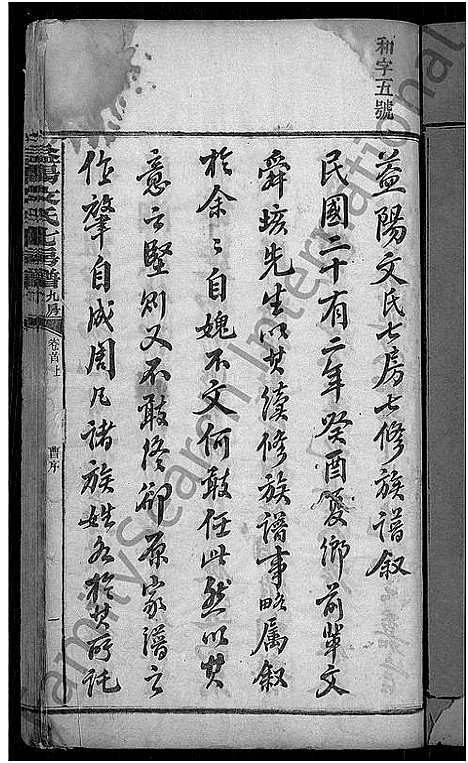 和字五號
益陽文氏七房七修族譜叙
民國二十有二年癸酉夏鄉前輩文
舜垓先生以其續修族譜事略属叙
於余〻自媿不文何敢任此然以其
意之堅则又不敢終卻原家譜之
作肇自成周凡諸族姓各於其所託
益陽文氏七房譜
九房
卷首上
曹序
一
FamilySearch International